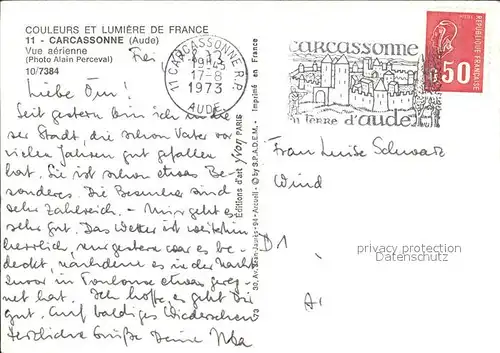 COULEURS ET LUMIÈRE DE FRANCE
11 - CARCASSONNE (Aude)
Vue aérienne
(Photo Alain Perceval)
10/7384
Liebe Omi!
Seit gestern bin ich in die-
ser Stadt, die schon Vater vor
vielen Jahren gut gefallen
hat. Sie ist schon etwas Be-
sonderes. Die Besucher sind
sehr zahlreich. - Mir geht es
sehr gut. Das Wetter ist weiterhin
herrlich, nur gestern war es be-
deckt, nachdem es in der Nacht
zuvor in Toulouse etwas gereg-
net hat. Ich hoffe, es geht Dir
gut. Auf baldiges Wiedersehen
Herzliche Grüße Deine
11 CARCASSONNE R.P.
17-8
1973
AUDE
Éditions d'art Yvon PARIS
© by S.P.A.D.E.M. - Imprimé en France
carcassonne
terre d'aude
0,50
Frau Luise Schwarz
D1
A1
privacy protection